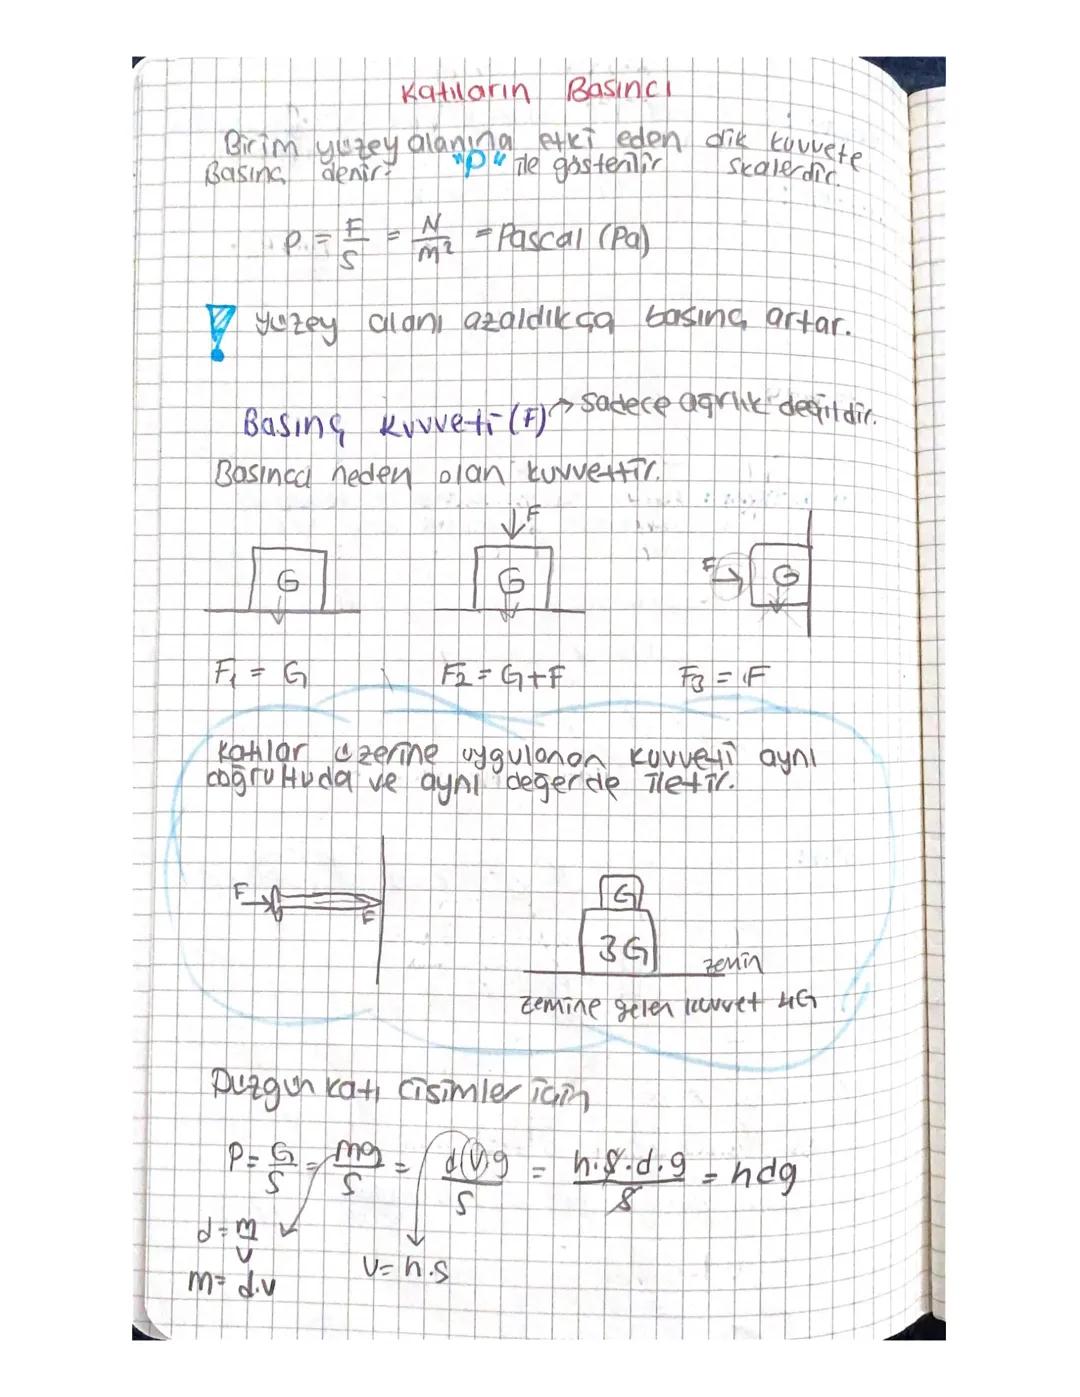 Katıların Basıncı
Birim yüzey alanına etki eden dik kuvvete
Basınç denir. "P" ile gösterilir skalerdir.
P = F/S = N/m² = Pascal (Pa)
! yüzey alanı azaldıkça basınç artar.
Basınç kuvveti (F) → Sadece ağırlık değildir.
Basınca neden olan kuvvettir.
F
G G F G
F₁ = G F₂ = G+F F₃ = F
Katılar üzerine uygulanan kuvveti aynı
doğrultuda ve aynı değerde iletir.
F F
G
3G zemin
zemine gelen kuvvet 4G
Düzgün katı cisimler için
P = G/S = mg/S = d(V)g/S = h.S.d.g/S = hdg
d = m/v
V = h.s
m = d.v